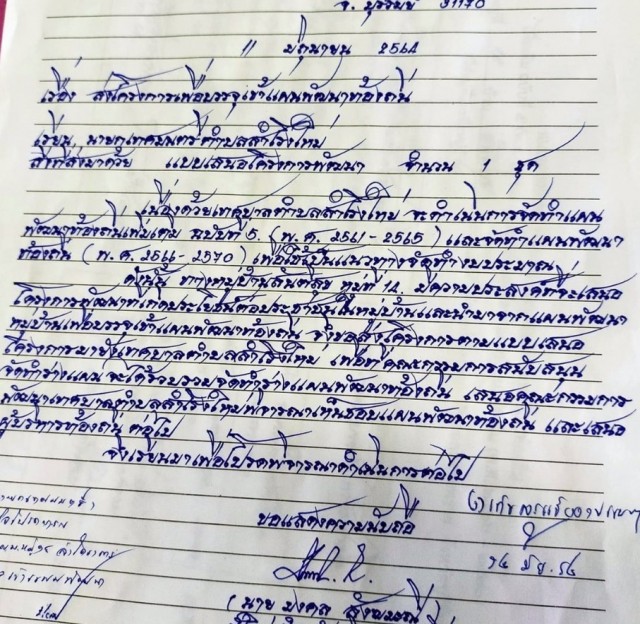 จ. บุรีรัมย์ 31170
11 มิถุนายน 2564
เรื่อง ส่งโครงการเพื่อบรรจุเข้าแผนพัฒนาท้องถิ่น
เรียน นายกเทศมนตรีตำบลสำโรงใหม่
สิ่งที่ส่งมาด้วย แบบเสนอโครงการพัฒนา จำนวน 1 ชุด
เนื่องด้วยเทศบาลตำบลสำโรงใหม่ จะดำเนินการจัดทำแผน
พัฒนาท้องถิ่นเพิ่มเติม ฉบับที่ 5 (พ.ศ. 2561-2565) และจัดทำแผนพัฒนา
ท้องถิ่น (พ.ศ. 2566-2570) เพื่อใช้เป็นแนวทางจัดทำงบประมาณ
ดังนั้น ทางหมู่บ้านสันติสุข หมู่ที่ 14 มีความประสงค์ที่จะเสนอ
โครงการพัฒนาที่เกิดประโยชน์ต่อประชาชนในหมู่บ้านและนำมาจากแผนพัฒนา
หมู่บ้านเพื่อบรรจุเข้าแผนพัฒนาท้องถิ่น จึงขอส่งโครงการตามแบบเสนอ
โครงการมายังเทศบาลตำบลสำโรงใหม่ เพื่อที่คณะกรรมการสนับสนุน
จัดทำร่างแผน จะได้รวบรวมจัดทำร่างแผนพัฒนาท้องถิ่น เสนอคณะกรรมการ
พัฒนาเทศบาลตำบลสำโรงใหม่พิจารณาเห็นชอบแผนพัฒนาท้องถิ่น และเสนอ
ผู้บริหารท้องถิ่น ต่อไป
จึงเรียนมาเพื่อโปรดพิจารณาดำเนินการต่อไป
ขอแสดงความนับถือ
(นาย มงคล